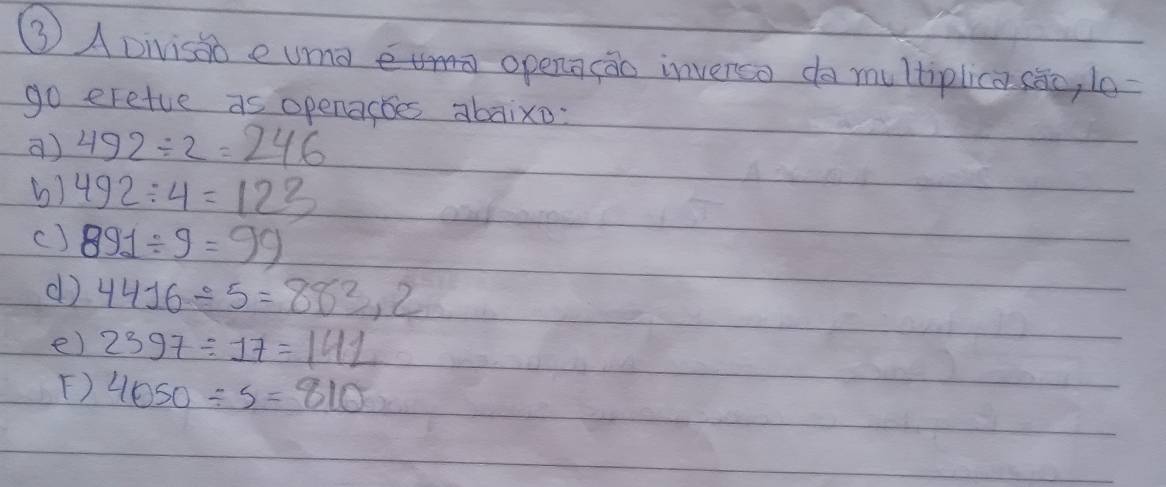 ③ A Divisão e uma é uma operação inversa da multiplicasão, lo-
go efetue as operações abaixo:
a) 492 ÷ 2 = 246
b) 492 ÷ 4 = 123
c) 891 ÷ 9 = 99
d) 4416 ÷ 5 = 883,2
e) 2397 ÷ 17 = 141
F) 4050 ÷ 5 = 810